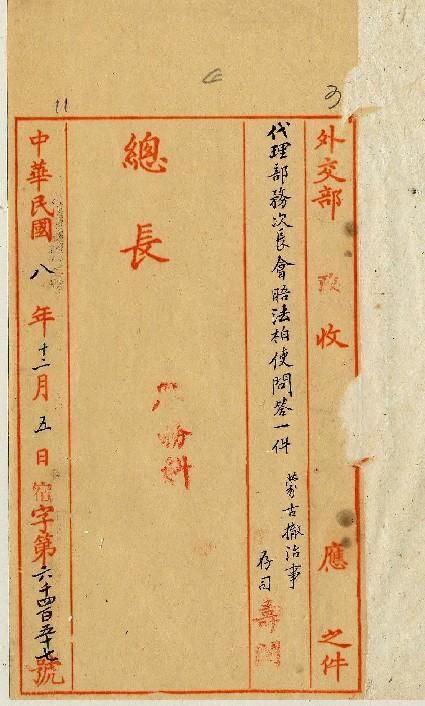 外交部 收 應 之件
代理部務次長會晤法柏使問答一件 蒙古撤治事
存司
壽 閱
總長
中華民國八年十二月五日宿字第六千四百五十七號